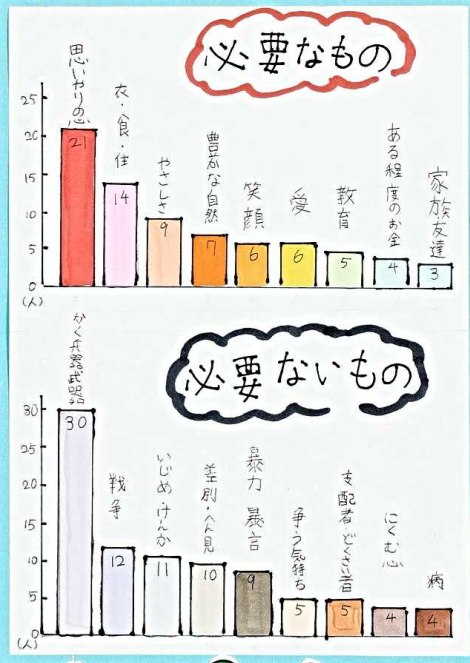 必要なもの
25
20
15
10
5
0
(人)
思いやりの心
21
衣・食・住
14
やさしさ
9
豊かな自然
7
笑顔
6
愛
6
教育
5
ある程度のお金
4
家族友達
3
必要ないもの
30
25
20
15
10
5
0
(人)
かく兵器武器
30
戦争
12
いじめ・けんか
11
差別・へん見
10
暴力 暴言
9
争う気持ち
5
支配者・どくさい者
5
にくむ心
4
病
4